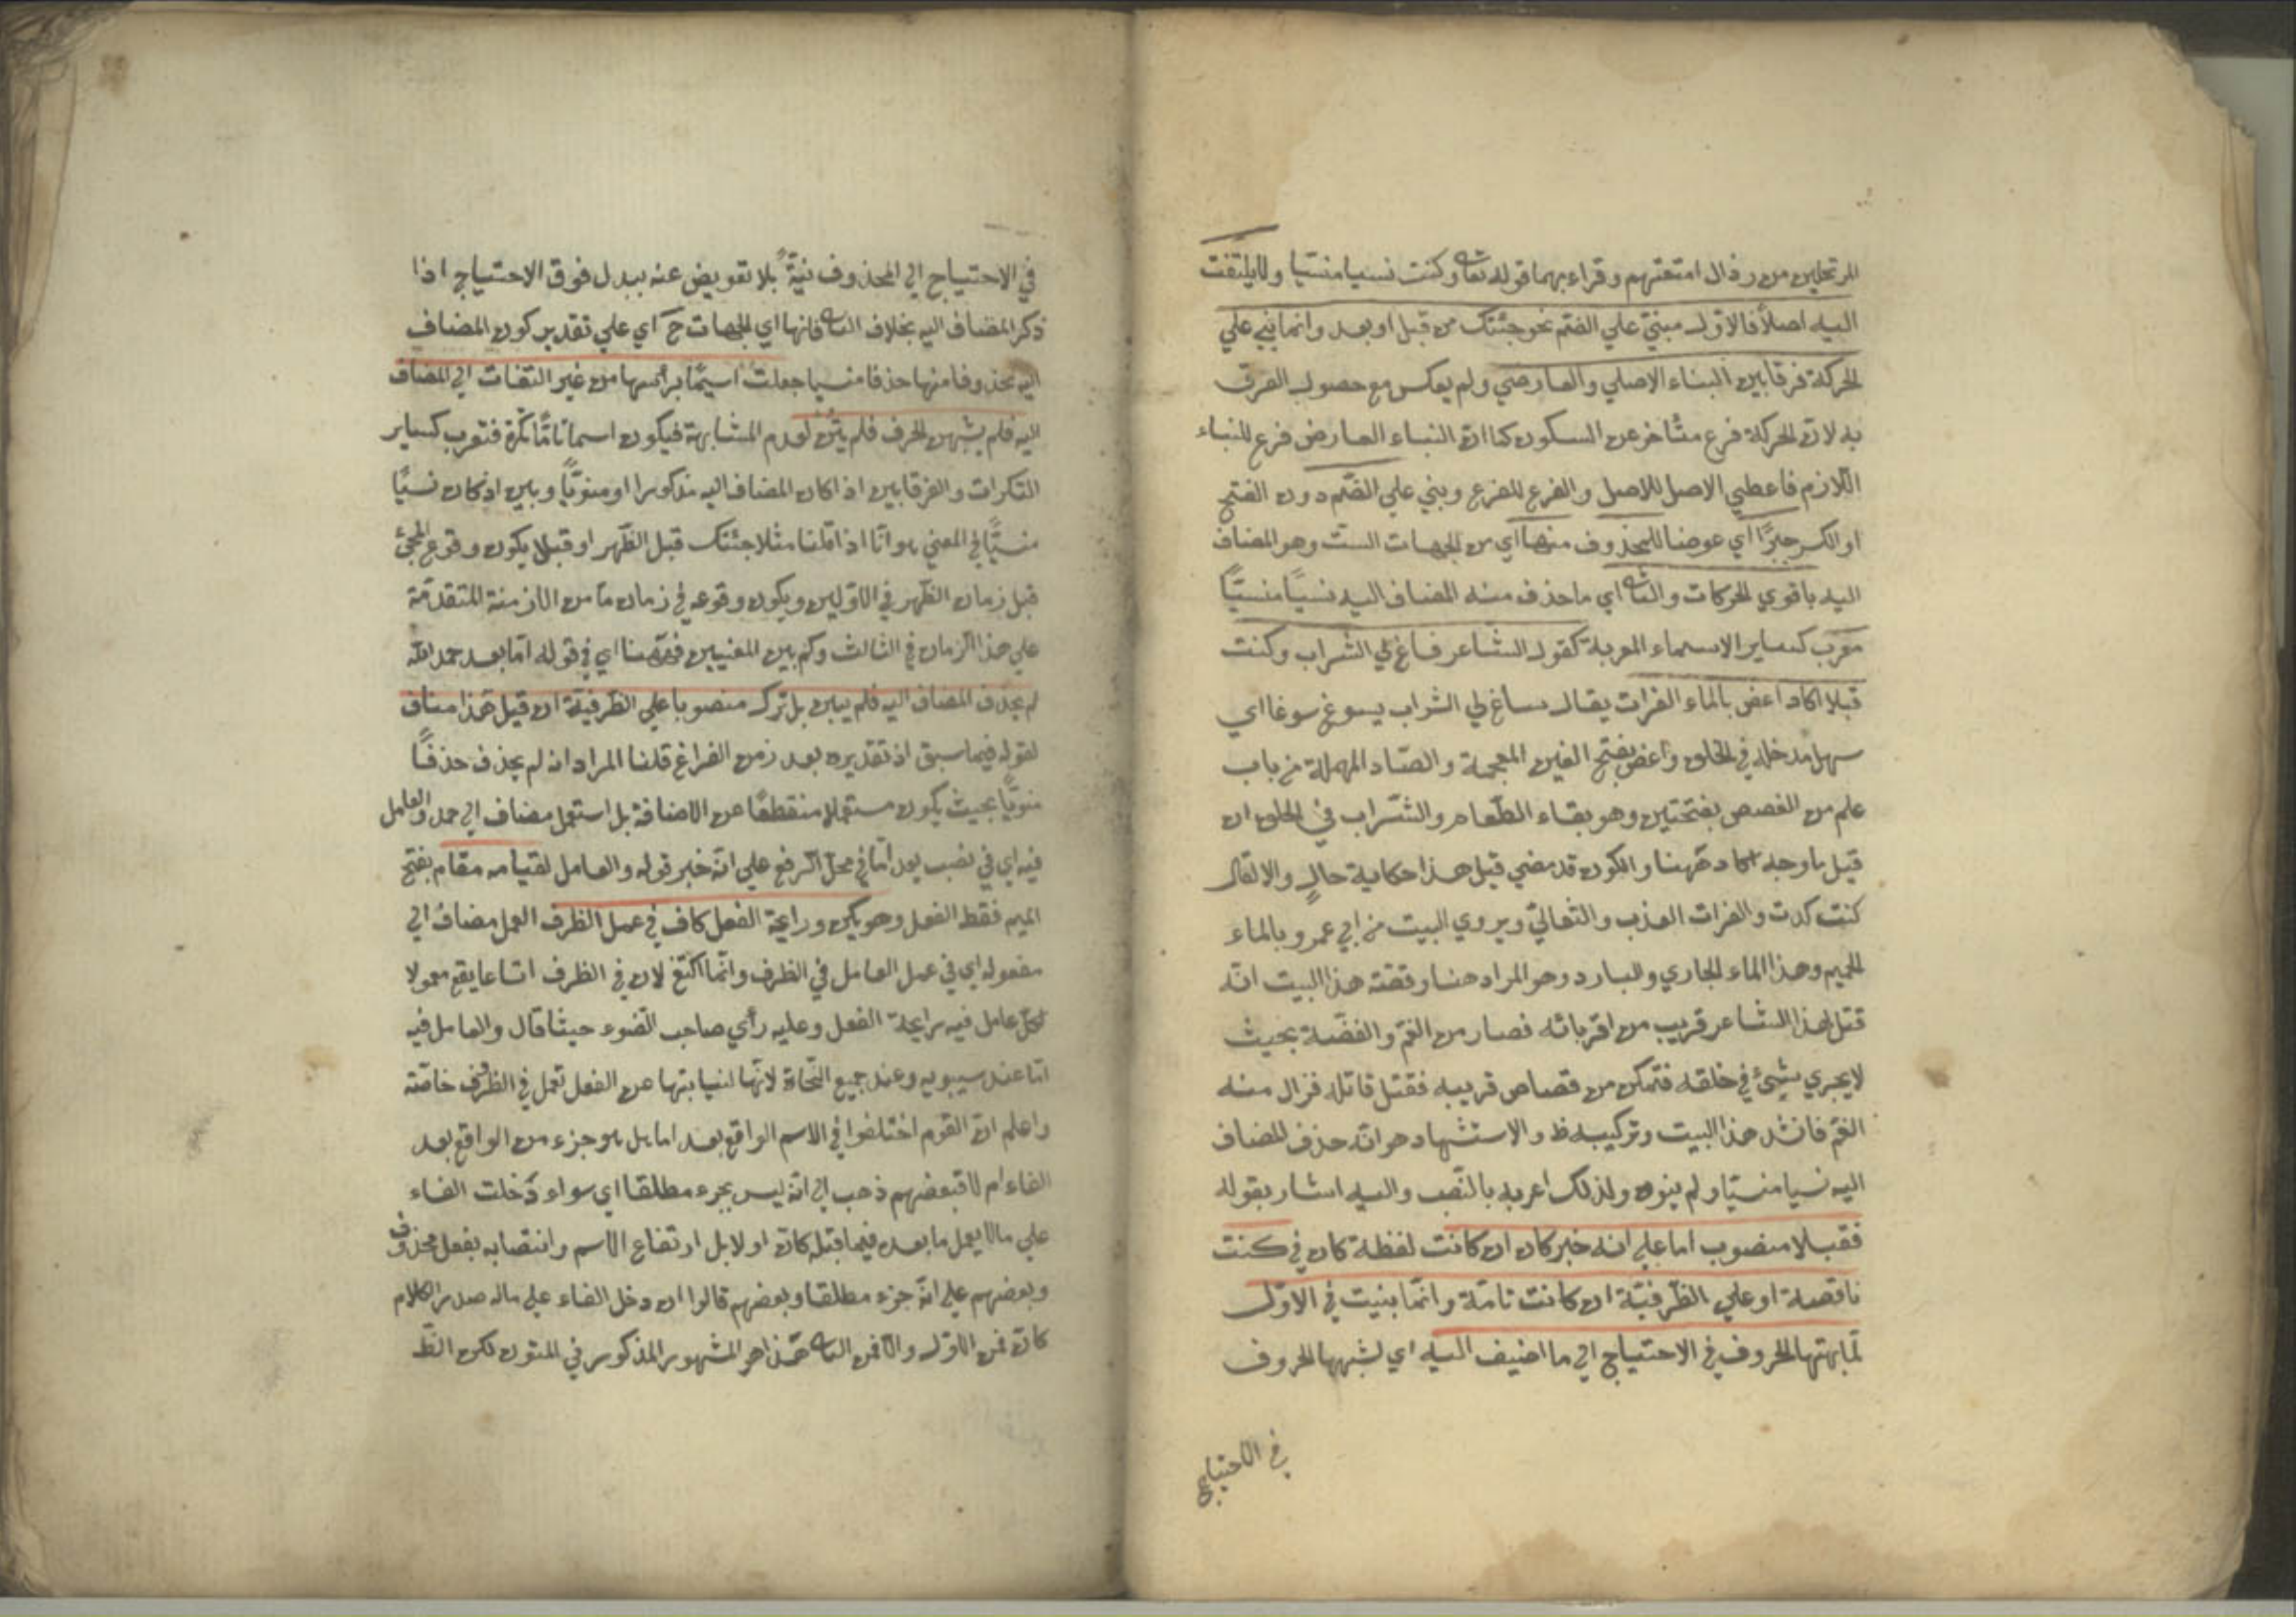 المرتحلين من رذال امتعتهم وقراء بهما قوله تعا وكنت نسيا منسيا ولا يلتفت
اليه اصلاً فالاوّل مبنيّ علي الضم نحو جئتك من قبل او بعد وانما بني علي
الحركة فرقا بين البناء الاصلي والعارضي ولم يعكس مع حصول الفرق
به لانّ الحركة فرع متأخر عن السكون كما انّ البناء العارض فرع للبناء
اللازم فاعطي الاصل للاصل والفرع للفرع وبني علي الضّم دون الفتح
او الكسر جبرًا اي عوضا للمحذوف منها اي من الجهات الست وهو المضاف
اليه باقوي الحركات والثا اي ما حذف منه المضاف اليه نسيًا منسيًّا
معرب كساير الاسماء المعربة كقول الشاعر فساغ لي الشراب وكنت
قبلا اكاد اغص بالماء الفرات يقال ساغ لي الشراب يسوغ سوغا اي
سهل مدخله في الحلق واغص بفتح الغين المعجمة والصّاد المهملة من باب
علم من الغصص بفتحتين وهو بقاء الطّعام والشّراب في الحلق ان
قيل ما وجه اكاد ههنا والكون قد مضي قيل هذا حكاية حالٍ والا لقال
كنت كدت والفرات العذب والثعالبيّ ويروي البيت من ابي عمرو بالماء
الحميم وهذا الماء الجاري والبارد وهو المراد هنا وقصّة هذا البيت انّه
قتل لهذا الشاعر قريب من اقربائه فصار من الغمّ والغصّة بحيث
لا يجري شيئ في حلقه فتمكن من قصاص قريبه فقتل قاتله فزال منه
الغمّ فانشد هذا البيت وتركيبه ظ والاستشهاد هو انّه حذف المضاف
اليه نسيا منسيّا ولم ينوه ولذلك اعربه بالنّصب واليه اشار بقوله
فقبلا منصوب اما علي انه خبر كان ان كانت لفظة كان في كنت
ناقصة او علي الظّرفيّة ان كانت تامّة وانّما بنيت في الاوّل
لمشابهتها الحروف في الاحتياج الي ما اضيف اليه اي لشبهها الحروف
في الاحتياج
في الاحتياج الي المحذوف نيّةً بلا تعويض عنه ببدل فوق الاحتياج اذا
ذكر المضاف اليه بخلاف الثا فانها اي الجهات ح اي علي تقدير كون المضاف
اليه محذوفا منها حذفا منسيا جعلت اسمًا براسها من غير التفات الي المضاف
اليه فلم يشبهن الحرف فلم يبنّ لعدم المشابهة فيكون اسما تامًّا نكرة فتعرب كساير
النكرات والفرق بين اذا كان المضاف اليه مذكورا او منويًّا وبين اذ كان نسيًا
منسيًّا في المعني هو انّا اذا قلنا مثلا جئتك قبل الظّهر او قبلا يكون وقوع المجئ
قبل زمان الظّهر في الاوّلين ويكون وقوعه في زمان ما من الازمنة المتقدّمة
علي هذا الزمان في الثالث وكم بين المعنيين فههنا اي في قوله امّا بعد حمد الله
لم يحذف المضاف اليه فلم يبن بل ترك منصوبا علي الظّرفيّة ان قيل هذا مناف
لقوله فيما سبق اذ تقديره بعد زمن الفراغ قلنا المراد انه لم يحذف حذفًا
منويًّا بحيث يكون مستعملا منقطعًا عن الاضافة بل استعمل مضاف الي حمد والعامل
فيه اي في نصب بعد امّا في محلّ الرفع علي انّه خبر قوله والعامل لقيامه مقام بفتح
الميم فقط الفعل وهو يكن ورايحة الفعل كاف في عمل الظرف العمل مضاف الي
مفعوله اي في عمل العامل في الظرف وانّما اكتفي لان في الظرف اتساعا يقع معمولا
لكلّ عامل فيه رايحة الفعل وعليه رأي صاحب الضوء حيث قال والعامل فيه
امّا عند سيبويه وعند جميع النّحاة لانّها لنيابتها عن الفعل تعمل في الظرف خاصّة
واعلم انّ القوم اختلفوا في الاسم الواقع بعد اما هل هو جزء من الواقع بعد
الفاء ام لا فبعضهم ذهب الي انّه ليس بجزء مطلقا اي سواء دخلت الفاء
علي ما لا يعمل ما بعده فيما قبله كانّ او لا بل ارتفاع الاسم وانتصابه بفعل محذوف
وبعضهم علي انّه جزء مطلقا وبعضهم قالوا ان دخل الفاء علي ماله صدر الكلام
كانّ فمن الاوّل والّا فمن الثا هذا هو المشهور المذكور في المتون لكن الظّ